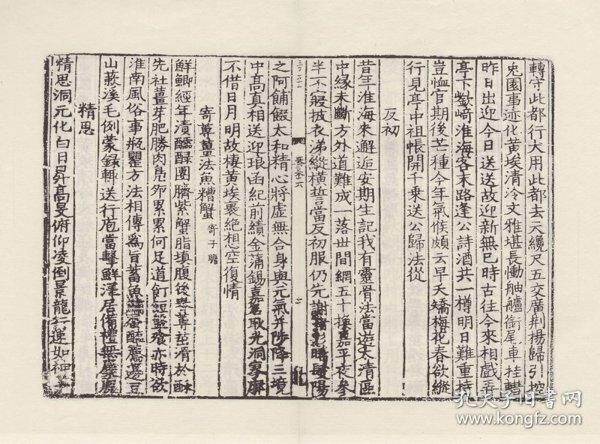 轉守此都行大用此都去天纔尺五交廣荊楊歸引控
兎園事迹化黃埃清冷文雅堪長慟舳艫銜尾車挂轊
昨日出迎今日送送故迎新無已時古往今來相戲弄
亭下欹崎淮海客末路逢公詩酒共一樽明日難重持
豈恤官期後芒種今年氣候頗云早天矯梅花春欲縱
行見亭中祖帳開千乘送公歸法從
反初
昔年淮海來邂逅安期生記我有靈骨法當遊太清區
中緣未斷方外道難成一落世間網五十換嘉平夜參
半不寢披衣涕縱橫誓當反初服仍先謝諸彭晞髮陽
之阿餔餟太和精心將虛無合身與元氣并陟降三境
中高真相送迎琅函紀前績金蒲錫嘉名耿光洞寥廓
不借日月明故棲黃埃裏絕想空復情
寄蓴薑法魚糟蟹 寄子瞻
鮮鯽經年漬醽醁團臍紫蟹脂填腹後春蓴茁滑於酥
先社薑芽肥勝肉鳧卵累累何足道飣餖盤飧亦時欲
淮南風俗事瓶罌方法相傳為旨蓄魚鱐蜃醢薦籩豆
山蔌溪毛例蒙錄輙送行庖當擊鮮澤居備禮無麋鹿
精思
精思洞元化白日昇高旻俯仰凌倒景龍行速如神
孔夫子旧书网
www.kongfz.com